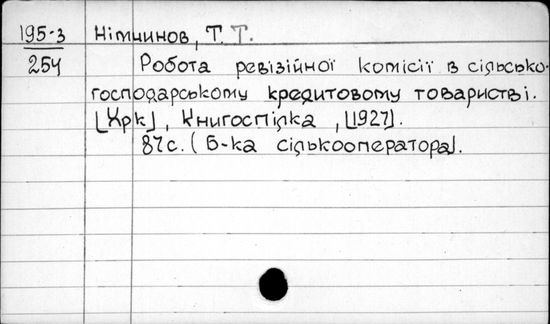 195-3 Німчинов, Т. Т.
254 Робота ревізійної комісії в сільсько-
господарському кредитовому товаристві.
[Хрк], Книгоспілка, [1927].
87с. (Б-ка сількооператора).